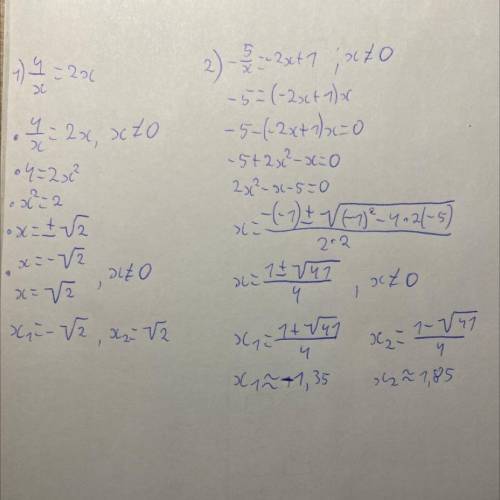 1) 4/x = 2x
• 4/x = 2x, x≠0
• 4=2x²
• x²=2
• x=±√2
• x=-√2
x=√2 , x≠0
x₁=-√2, x₂=√2
2) -5/x = -2x+1 ; x≠0
-5=(-2x+1)x
-5-(-2x+1)x=0
-5+2x²-x=0
2x²-x-5=0
x= (-(-1)±√((-1)²-4•2(-5)))/(2•2)
x= (1±√41)/4 , x≠0
x₁= (1+√41)/4 x₂= (1-√41)/4
x₁≈-1,35 x₂≈1,85